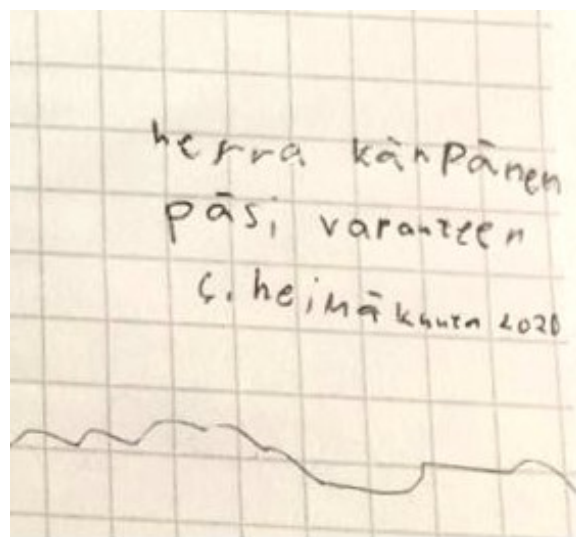 herra känpänen
päsi varanteen
5. heinäkuuta 2020